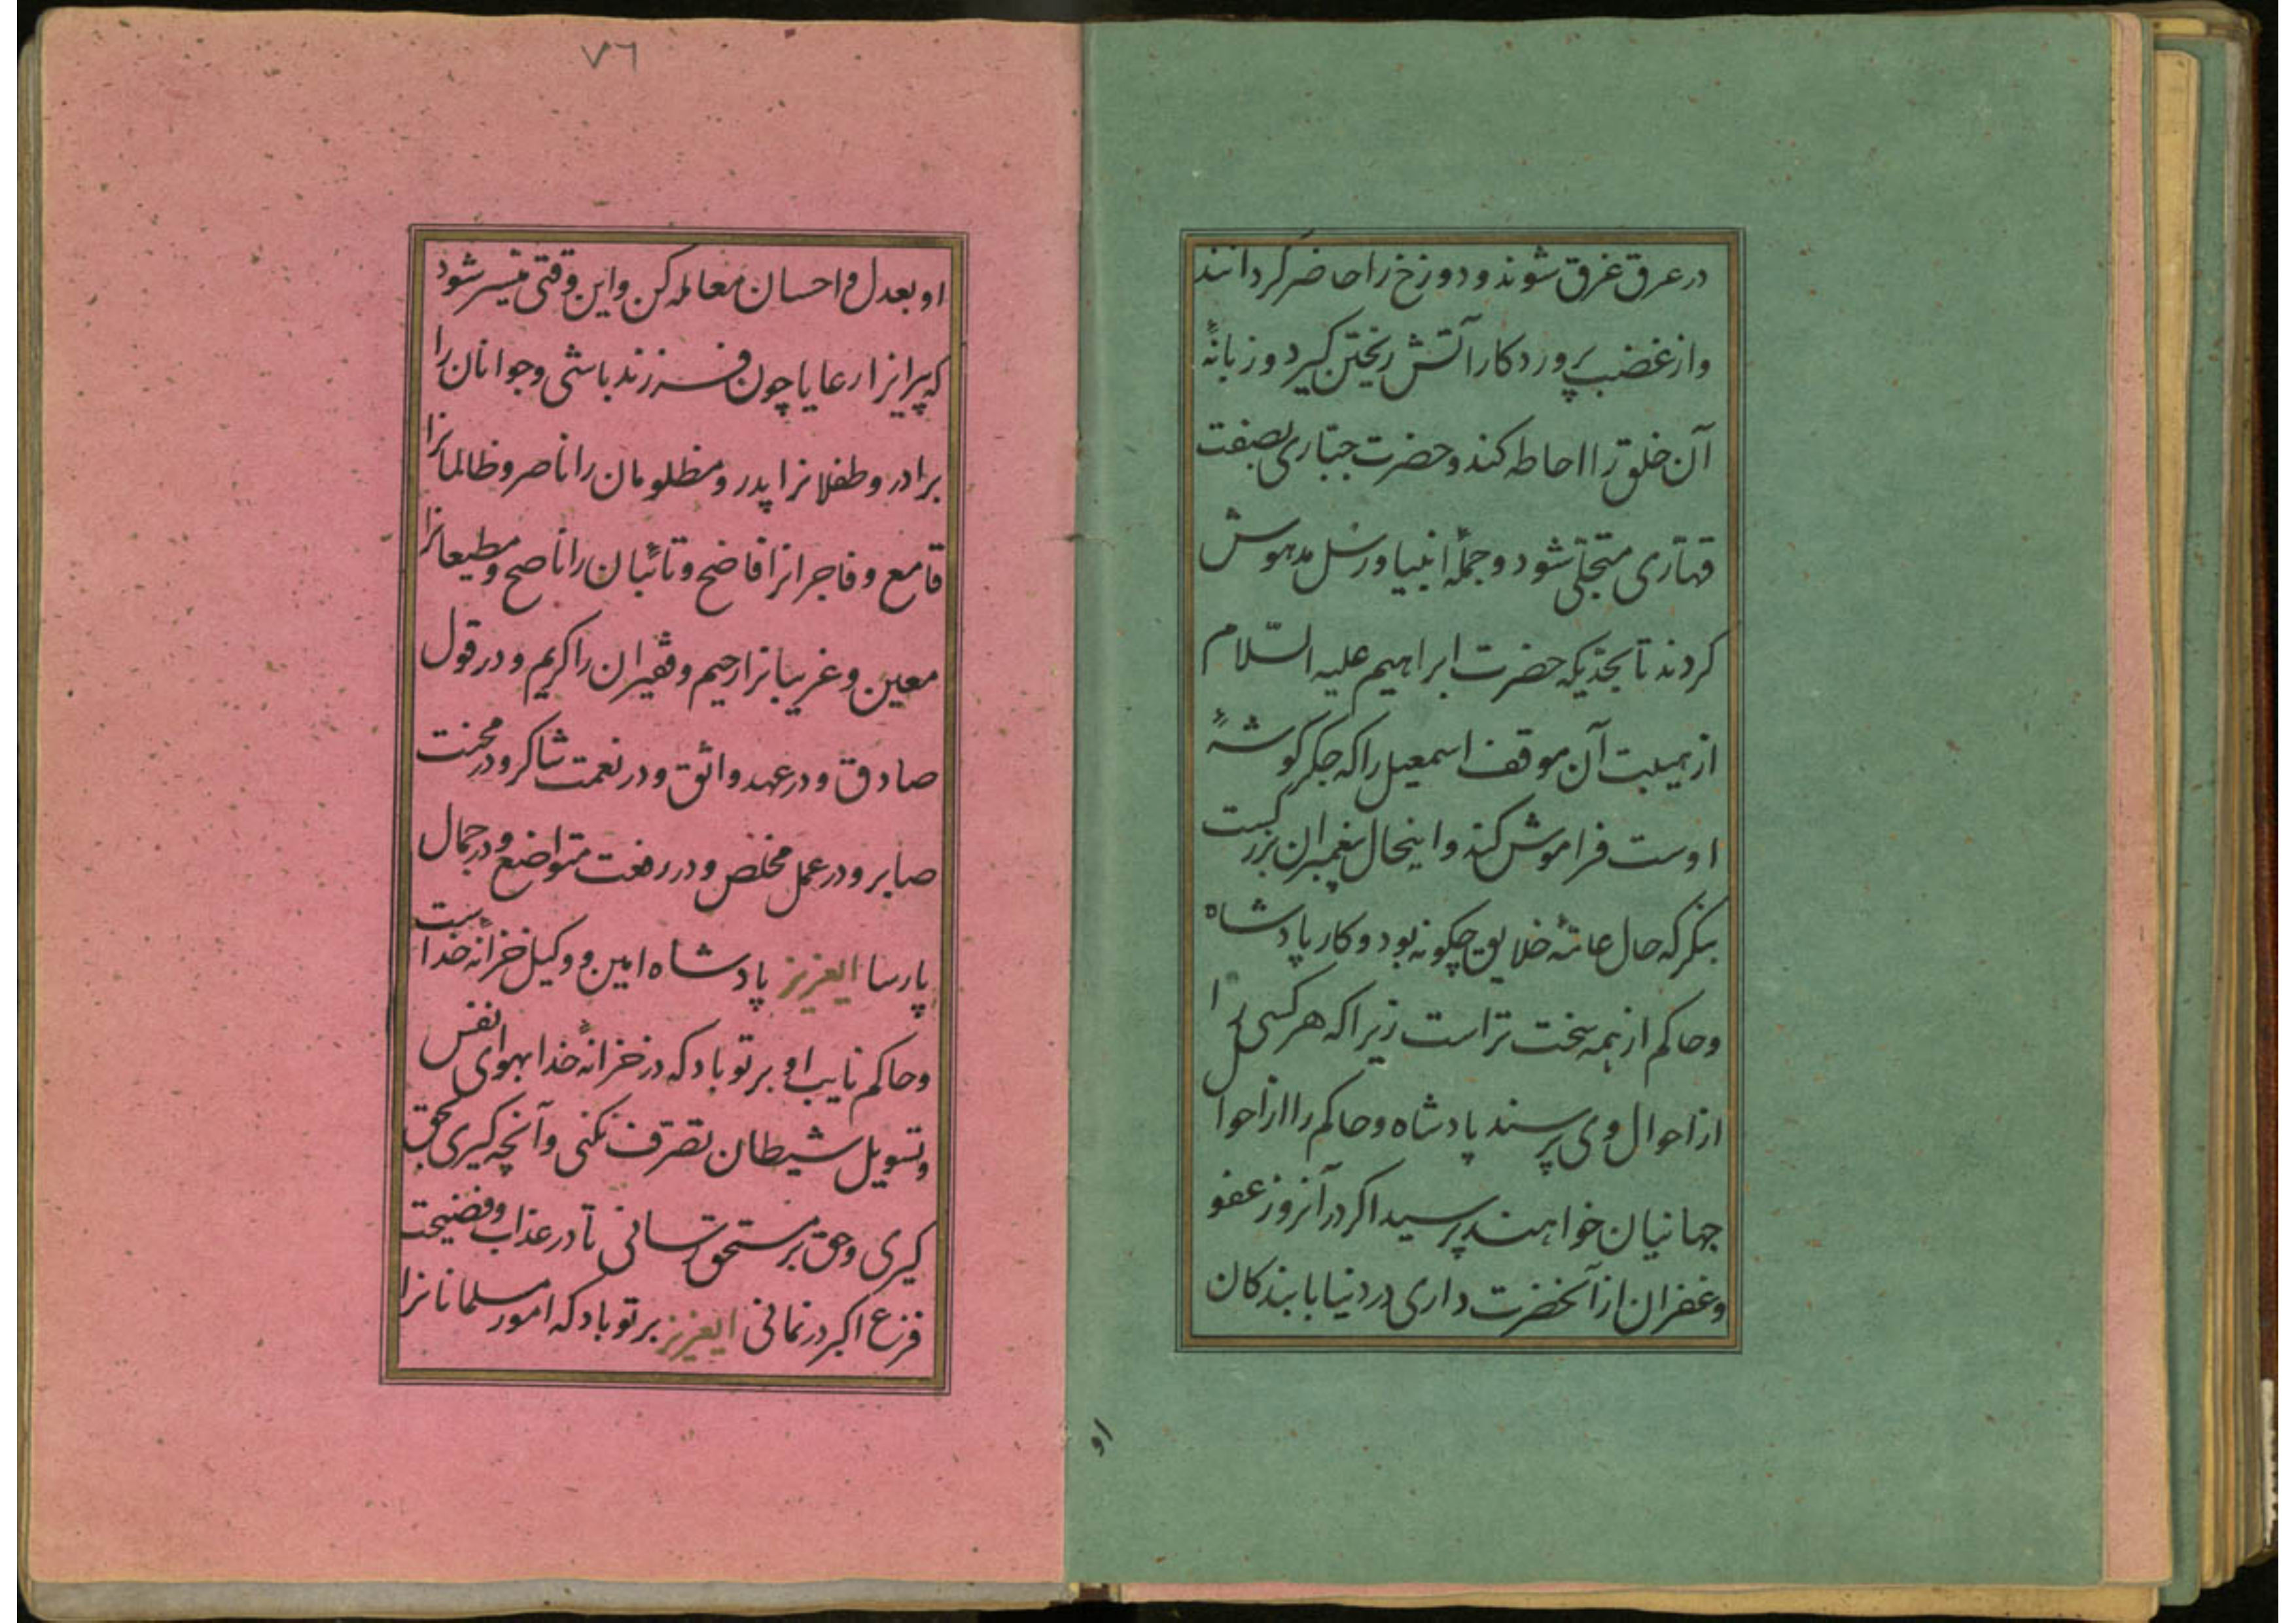 در عرق غرق شوند و دوزخ را حاضر گردانند
و از غضب پروردکار آتش ریختن کیرد و زبانهٔ
آن خلق را احاطه کند و حضرت جبّاری بصفت
قهّاری متجلّی شود و جملهٔ انبیا و رسل مدهوش
کردند تا بحدّیکه حضرت ابراهیم علیه السّلام
از هیبت آن موقف اسمعیل را که جکر کوشهٔ
اوست فراموش کند و اینحال پیغمبران بزرکست
بنکر که حال عامّهٔ خلایق چکونه بود و کار پادشاه
و حاکم از همه سخت تر است زیرا که هر کسی را
از احوال وی پرسند پادشاه و حاکم را از احوال
جهانیان خواهند پرسید اکر در آنروز عفو
و غفران از آنحضرت داری در دنیا با بندکان
او
٧٦
او بعدل و احسان معامله کن و این وقتی میسر شود
که پیرانرا رعایا چون فرزند باشی و جوانان را
برادر و طفلانرا پدر و مظلومان را ناصر و ظالمانرا
قامع و فاجرانرا فاضح و تائبان را ناصح و مطیعانرا
معین و غریبانرا رحیم و فقیران را کریم و در قول
صادق و در عهد واثق و در نعمت شاکر و در محنت
صابر و در عمل مخلص و در رفعت متواضع و در جمال
پارسا ایعزیز پادشاه امین و وکیل خزانهٔ خداست
و حاکم نایب او بر تو باد که در خزانهٔ خدا بهوای نفس
و تسویل شیطان تصرّف نکنی و آنچه کیری بحق
کیری و حق بر مستحق رسانی تا در عذاب و فضیحت
فزع اکبر در نمانی ایعزیز بر تو باد که امور مسلمانانرا